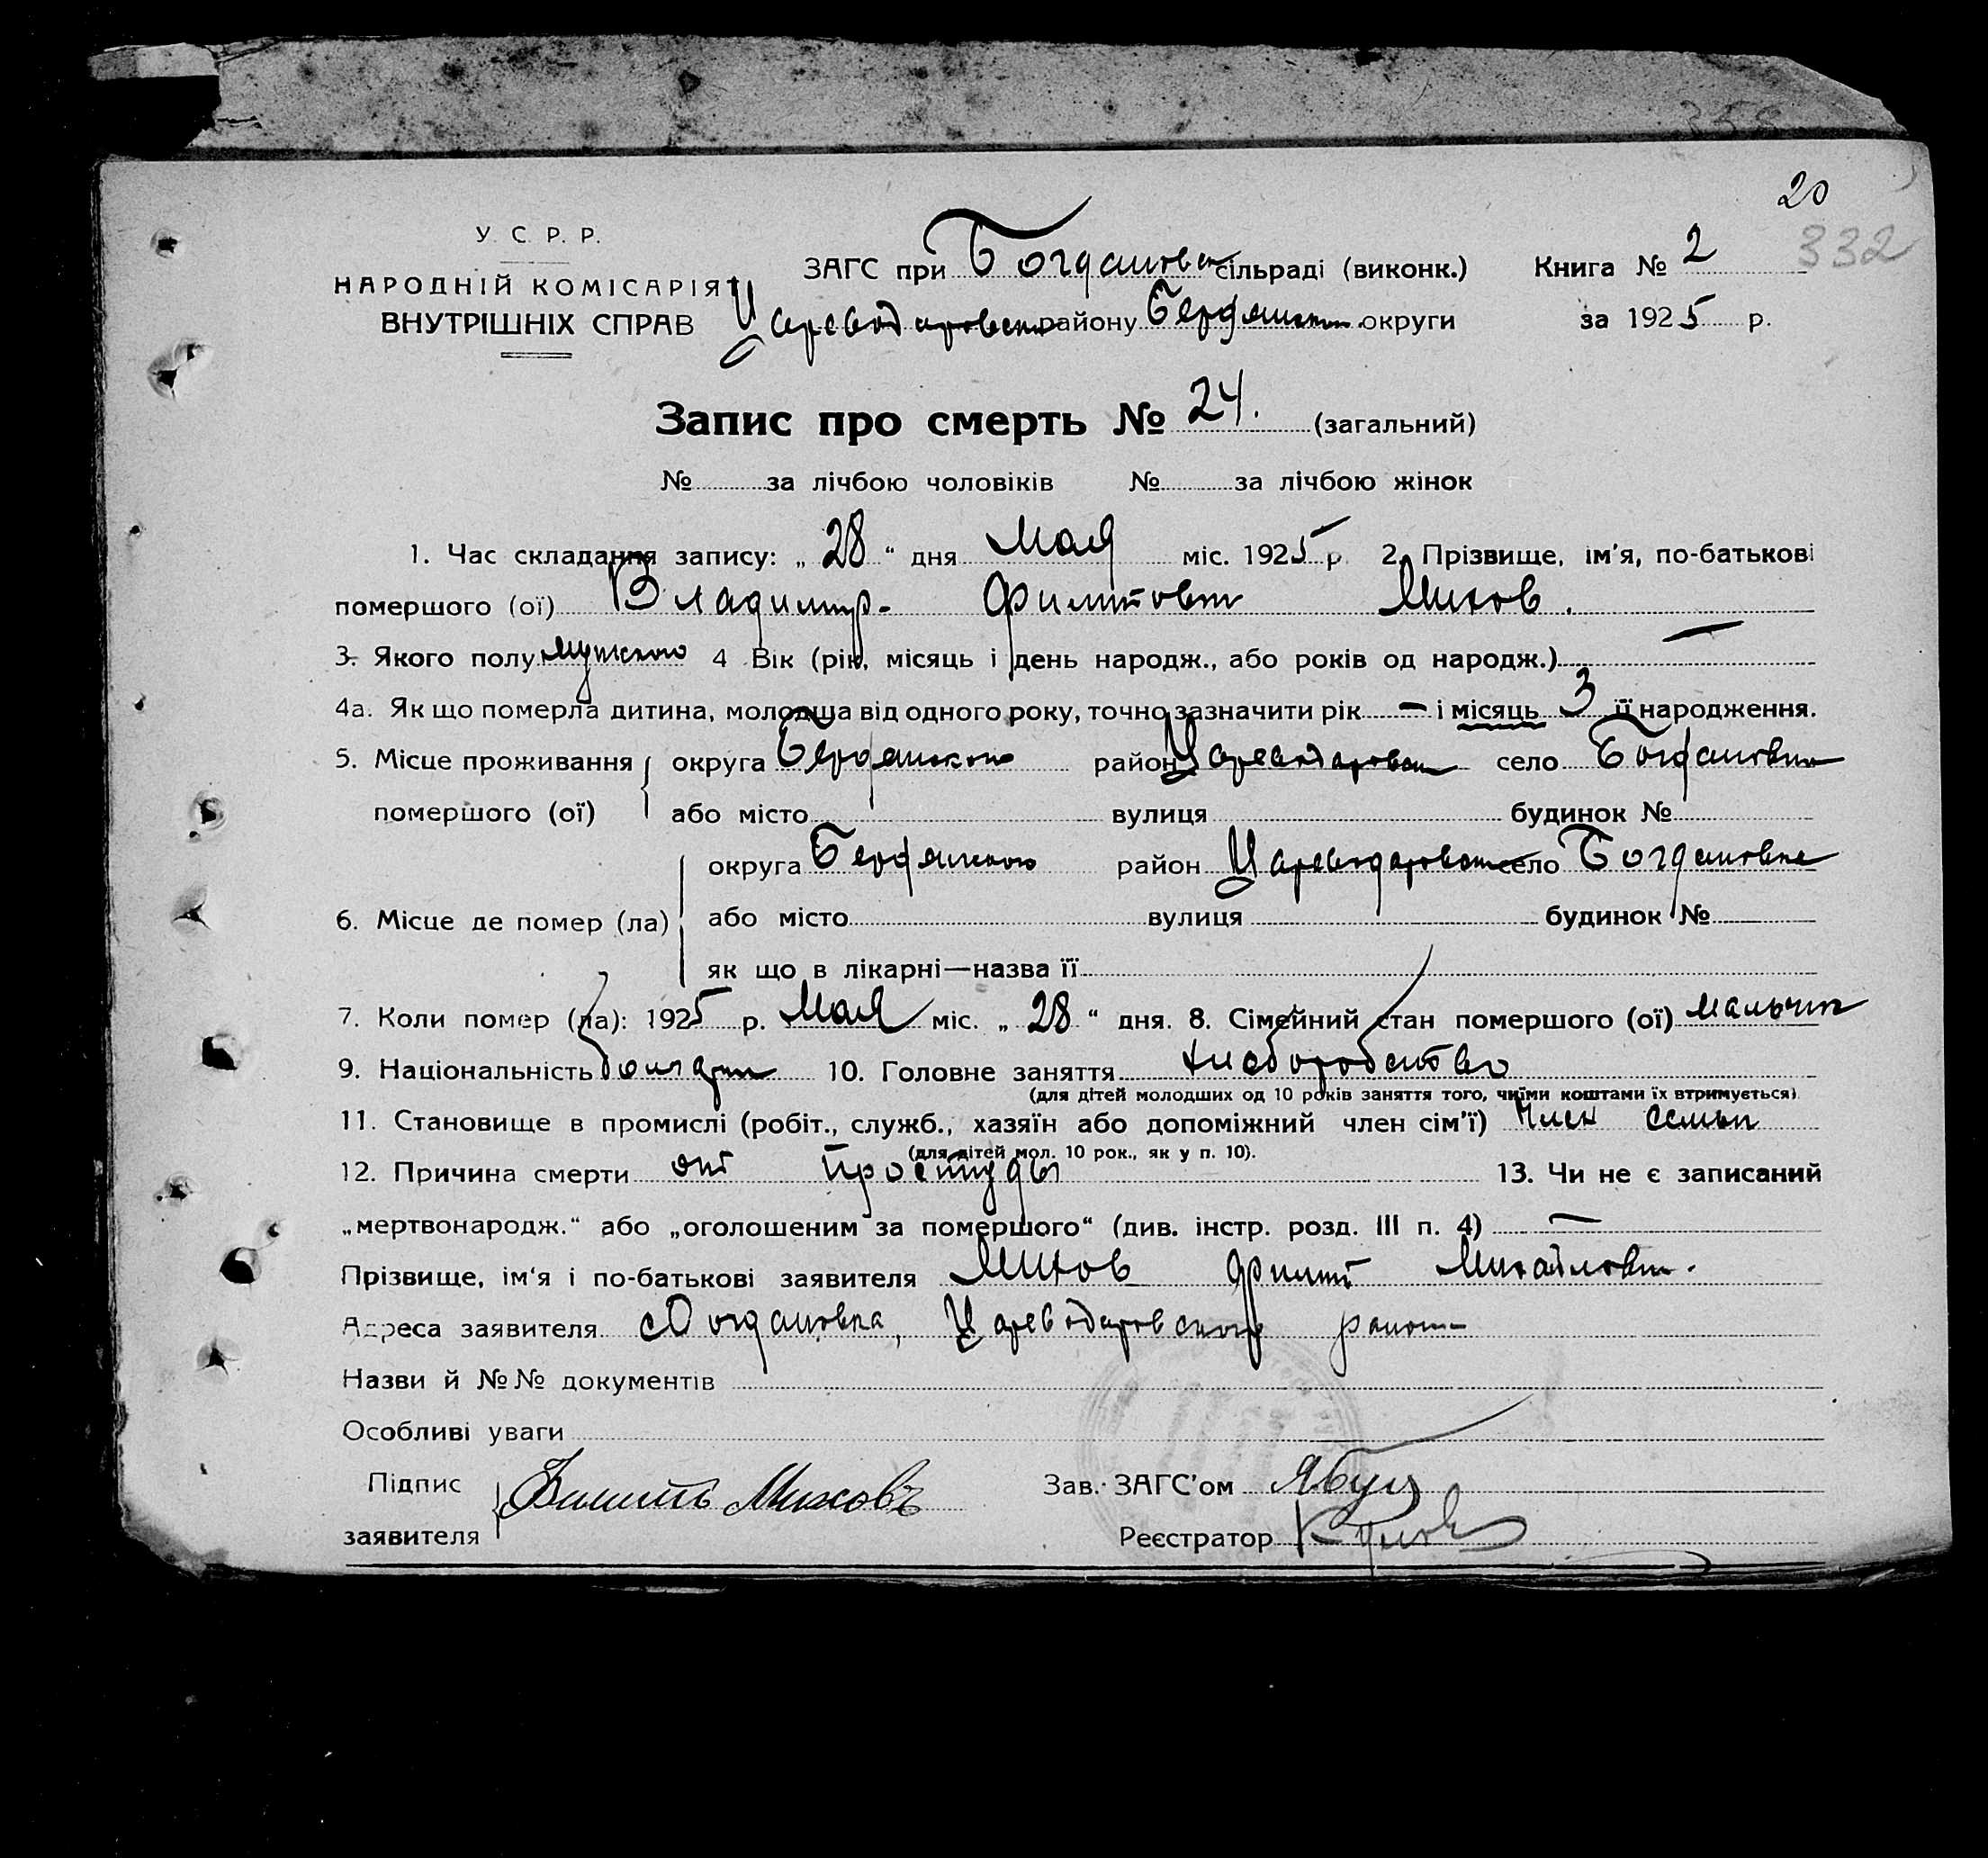 20
332
У. С. Р. Р.
НАРОДНІЙ КОМІСАРІЯТ
ВНУТРІШНІХ СПРАВ
ЗАГС при Богдановск сільраді (виконк.) Книга № 2
Цареводаровского району Бердянской округи за 1925 р.
Запис про смерть № 24. (загальний)
№ за лічбою чоловіків № за лічбою жінок
1. Час складання запису: „ 28 “ дня Мая міс. 1925 р. 2. Прізвище, ім'я, по-батькові
помершого (ої) Владимир Филиппович Михов.
3. Якого полу мужского 4 Вік (рік, місяць і день народж., або років од народж.) —
4а. Як що померла дитина, молодша від одного року, точно зазначити рік — і місяць 3 її народження.
5. Місце проживання округа Бердянского район Цареводаровск село Богдановка
помершого (ої) або місто вулиця будинок №
округа Бердянского район Цареводаровск село Богдановка
6. Місце де помер (ла) або місто вулиця будинок №
як що в лікарні—назва її
7. Коли помер (ла): 1925 р. Мая міс. „ 28 “ дня. 8. Сімейний стан помершого (ої) мальчик
9. Національність болгарин 10. Головне заняття хлеборобство
(для дітей молодших од 10 років заняття того, чиїми коштами їх втримується)
11. Становище в промислі (робіт., служб., хазяїн або допоміжний член сім'ї) Член семьи
(для дітей мол. 10 рок., як у п. 10).
12. Причина смерти от простуды 13. Чи не є записаний
„мертвонародж.“ або „оголошеним за помершого“ (див. інстр. розд. III п. 4) —
Прізвище, ім'я і по-батькові заявителя Михов Филипп Михайлович.
Адреса заявителя с Богдановка, Цареводаровского района
Назви й №№ документів
Особливі уваги
Підпис
заявителя Филиппъ Миховъ
Зав. ЗАГС'ом
Реєстратор